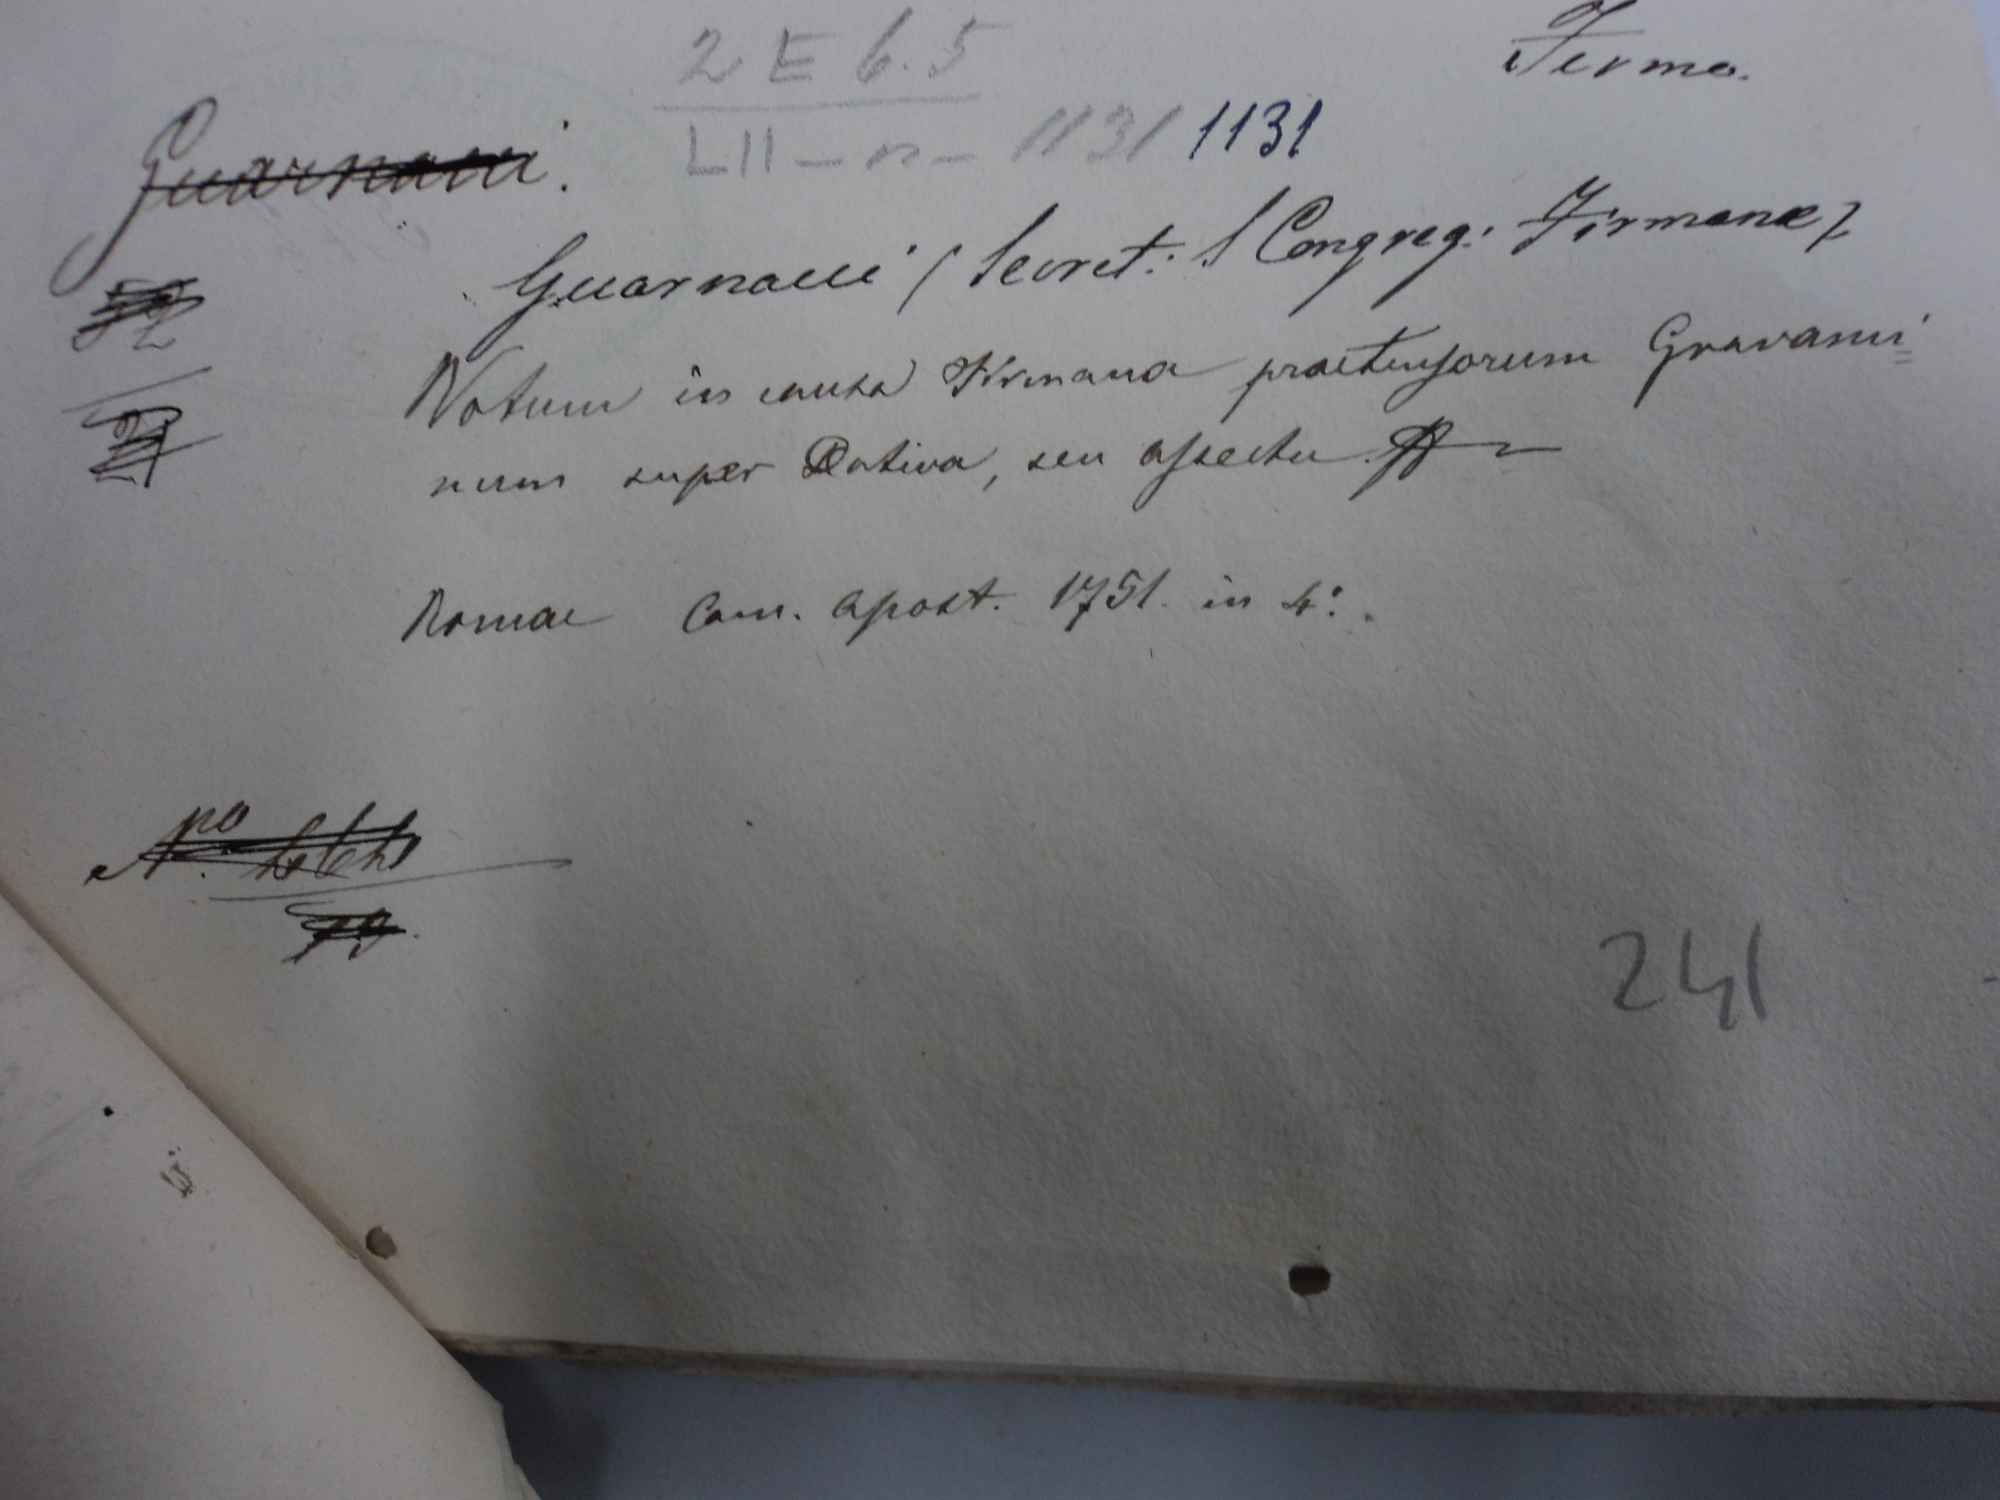 2 E 6.5
Fermo.
LII - n - 1131 1131
Guarnacci.
Guarnacci (Secret: S Congreg: Firmanae)
Votum in causa Firmana praetensorum Gravami=
num super Dativa, seu assectu
Romae Cam. Apost. 1751. in 4º.
No.
241